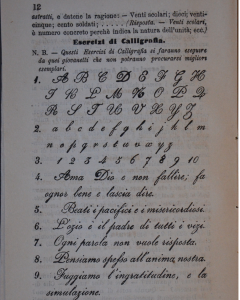 12
astratti, e datene la ragione: — Venti scolari; dieci; venti-
cinque; cento soldati; . . . . . (Risposta. — Venti scolari,
è numero concreto perchè indica la natura dell'unità; ecc.)
Esercizi di Calligrafia.
N. B. — Questi Esercizi di Calligrafia si faranno eseguire
da quei giovanetti che non potranno procurarsi migliori
esemplari.
1. A B C D E F G H
I K L M N O P Q
R S T U V X Y Z
2. a b c d e f g h i j k l m
n o p q r s t u v x y z
3. 1 2 3 4 5 6 7 8 9 10
4. Ama Dio e non fallire; fa
ognor bene e lascia dire.
5. Beati i pacifici e i misericordiosi.
6. L'ozio è il padre di tutti i vizi.
7. Ogni parola non vuole risposta.
8. Pensiamo spesso all'anima nostra.
9. Fuggiamo l'ingratitudine, e la
simulazione.